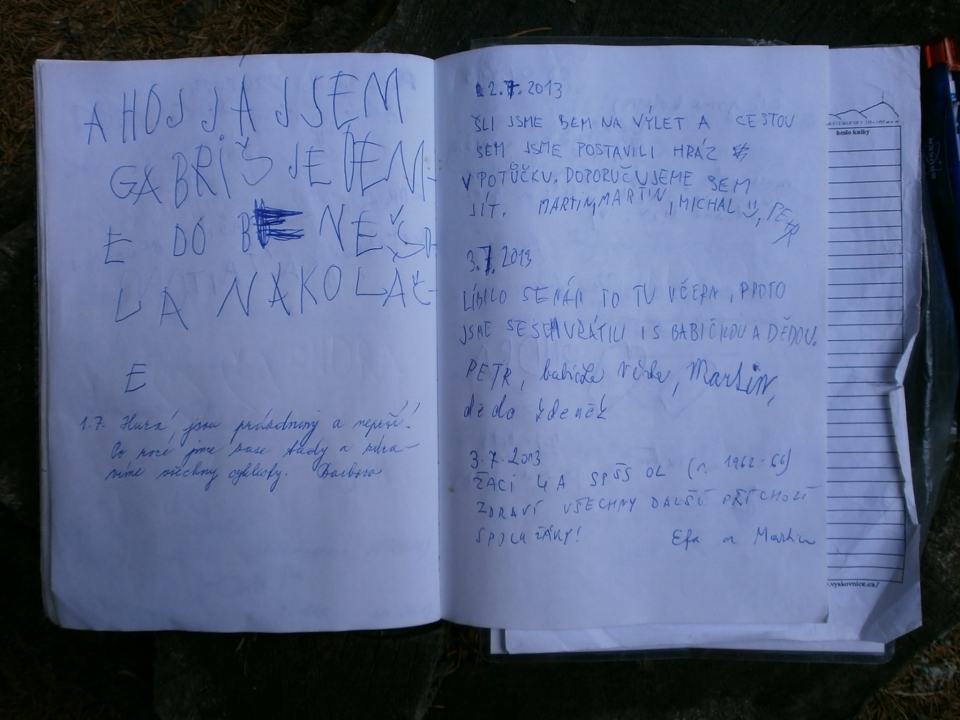 AHOJ JÁ JSEM
GABRIŠ JEDEM-
E DO NEŠD-
LA NAKOLAČ-
E
1.7. Hurá jsou prázdniny a neprší!
Po roce jsme zase tady a zdra-
víme všechny cyklisty. Barbora
2.7.2013
ŠLI JSME SEM NA VÝLET A CESTOU
SEM JSME POSTAVILI HRÁZ
V POTŮČKU. DOPORUČUJEME SEM
JÍT. MARTIN, MARTIN, MICHAL, PETR
3.7.2013
LÍBILO SE NÁM TO TU VČERA, PROTO
JSME SE SEM VRÁTILI I S BABIČKOU A DĚDOU.
PETR, babička Věrka, Martin,
děda Zdeněk
3.7.2013
ŽÁCI 4A SPŠS OL (r. 1962-66)
ZDRAVÍ VŠECHNY DALŠÍ PŘÍCHOZÍ
SPOLUŽÁKY! Efa a Martin
heslo knihy
www.vyskovnice.cz/